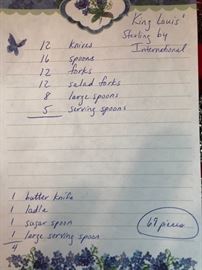 "King Louis"
Sterling by
International
12 knives
16 spoons
12 forks
12 salad forks
8 large spoons
5 serving spoons
1 butter knife
1 ladle
1 sugar spoon
1 large serving spoon
4
69 pieces